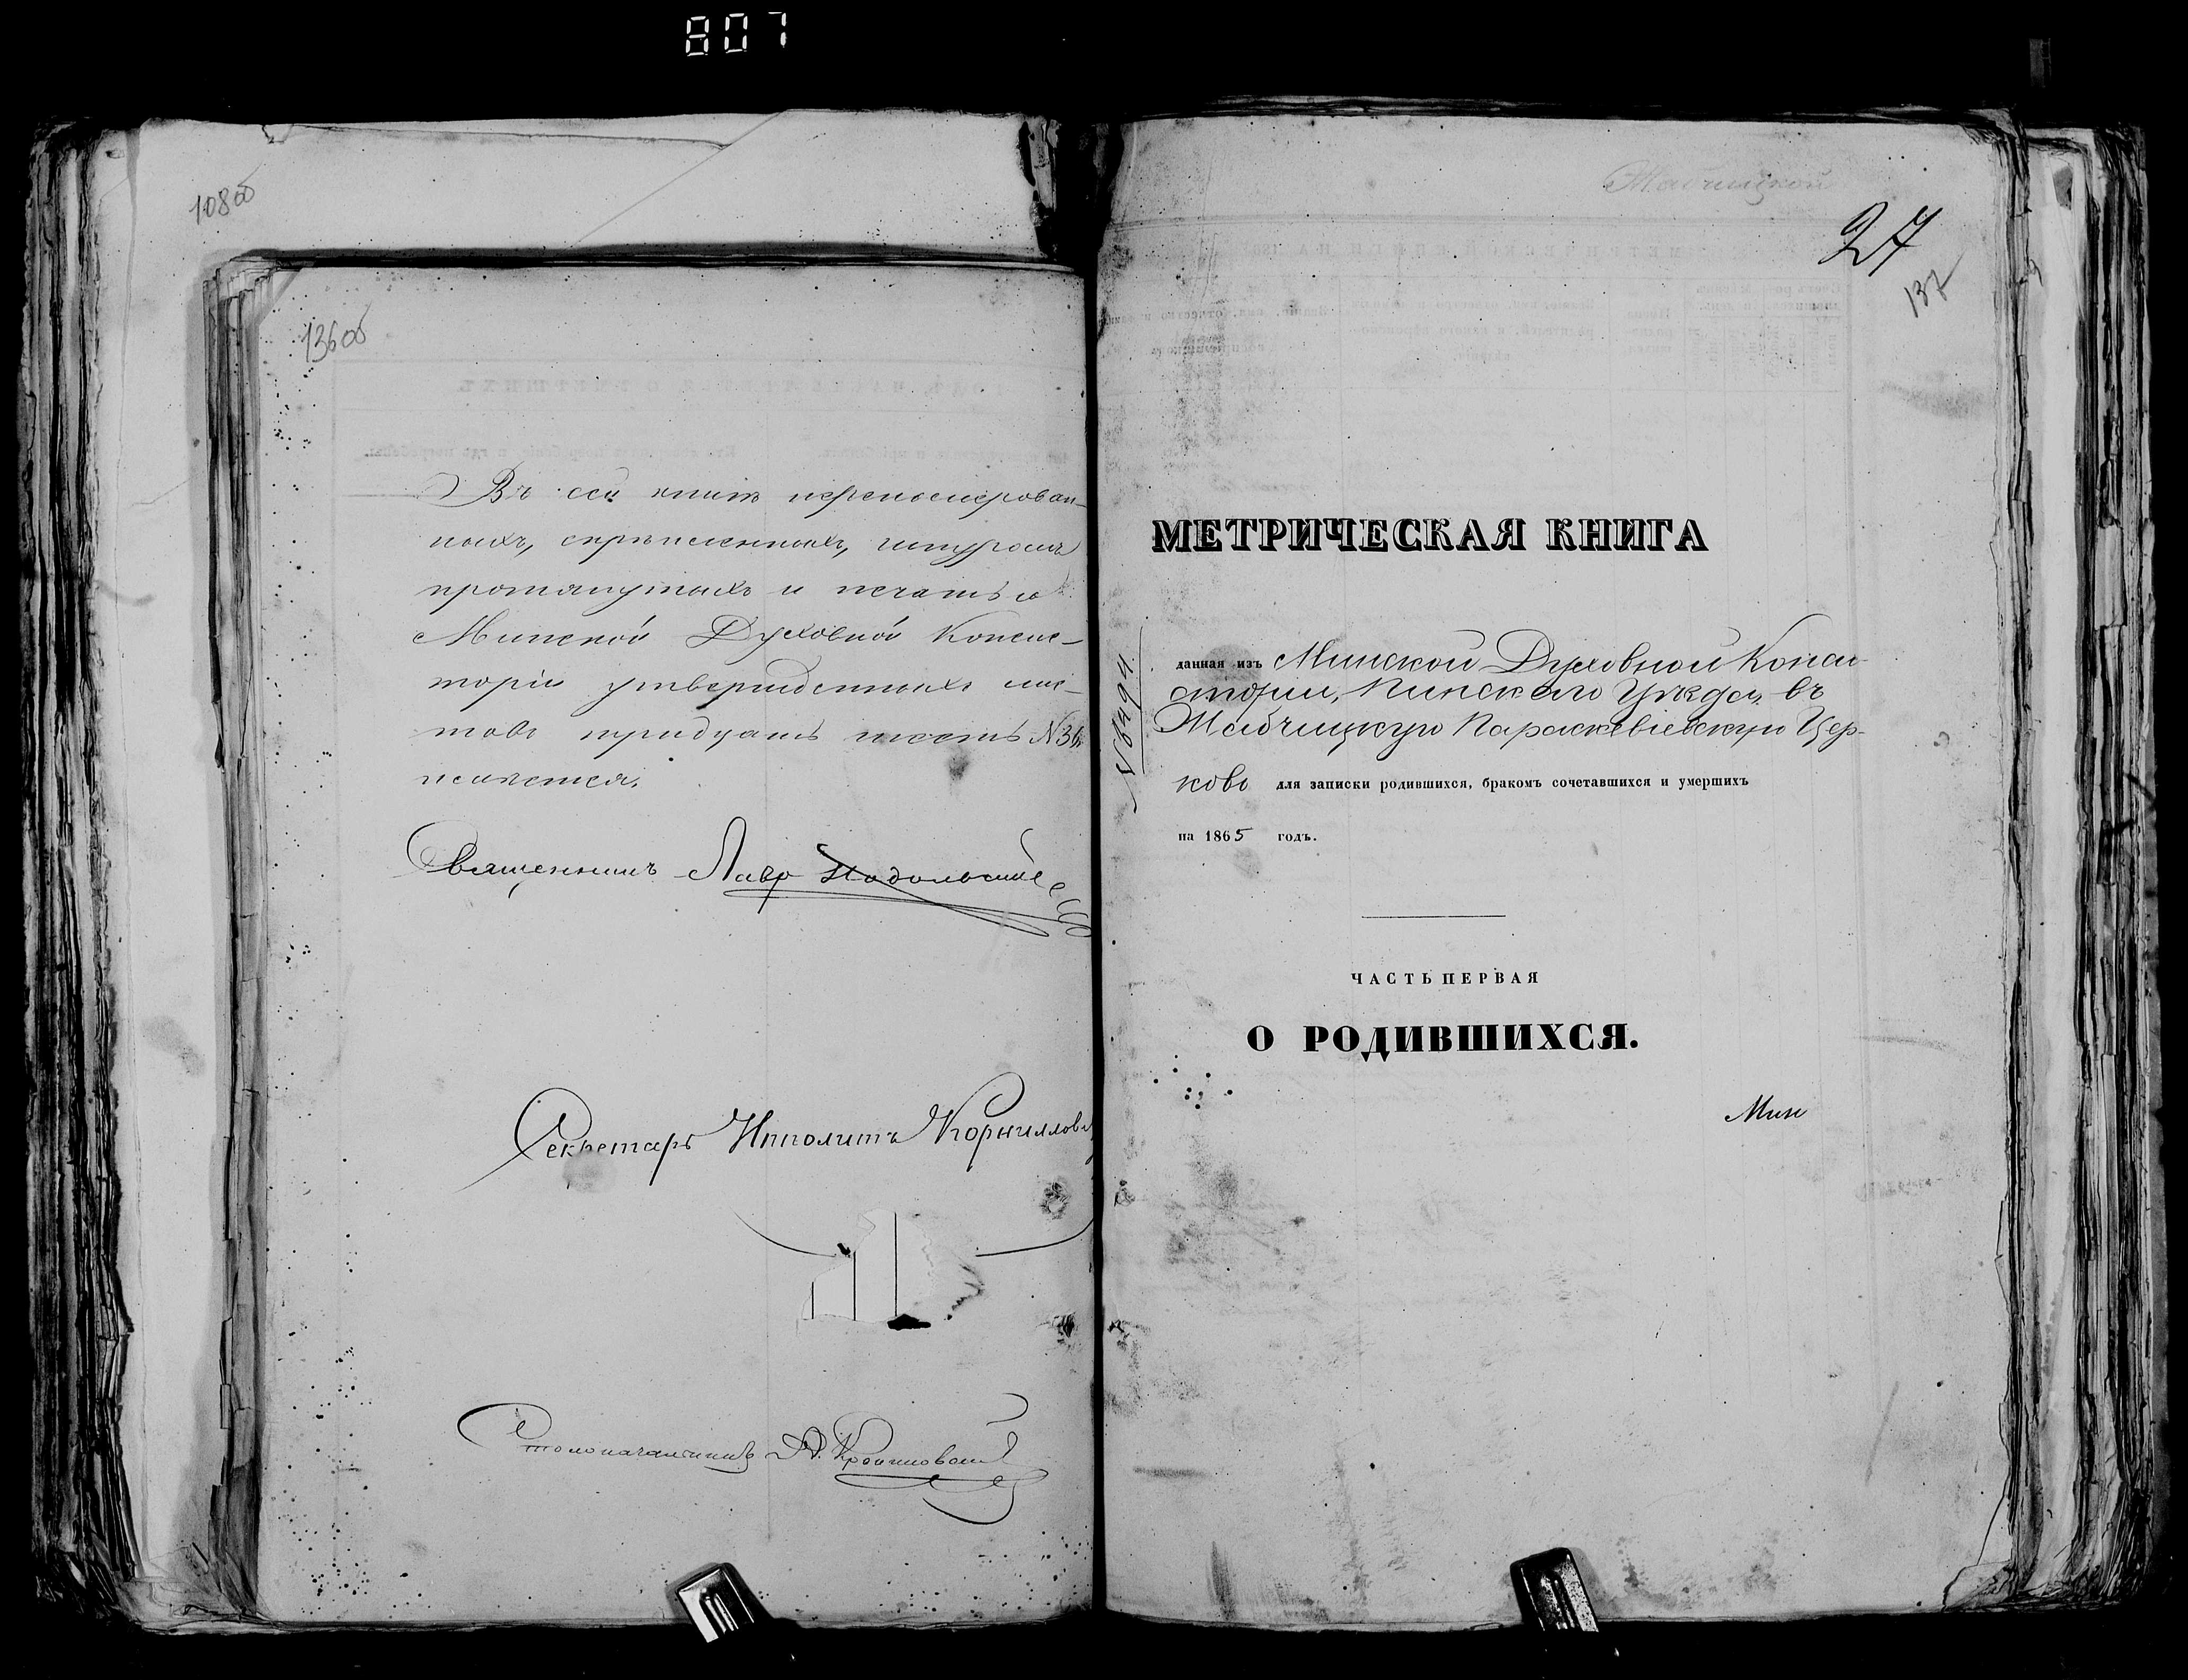 807
108об
136об
Въ сей книгѣ перенумерован-
ныхъ, скрѣпленныхъ, шнуромъ
протянутыхъ и печатью
Минской Духовной Консис-
торіи утвержденныхъ лис-
товъ тридцать шесть №36
числится.
Священникъ Лавр Подольскій
Секретарь Ипполитъ Корниллов
Столоначальникъ
Мабчицкой
27
137
МЕТРИЧЕСКАЯ КНИГА
данная изъ Минской Духовной Конси-
сторіи, Пинскаго Уѣзда, въ
Жабчицкую Параскевіевскую Цер-
ковь для записки родившихся, бракомъ сочетавшихся и умершихъ
на 1865 годъ.
ЧАСТЬ ПЕРВАЯ
О РОДИВШИХСЯ.
Мин